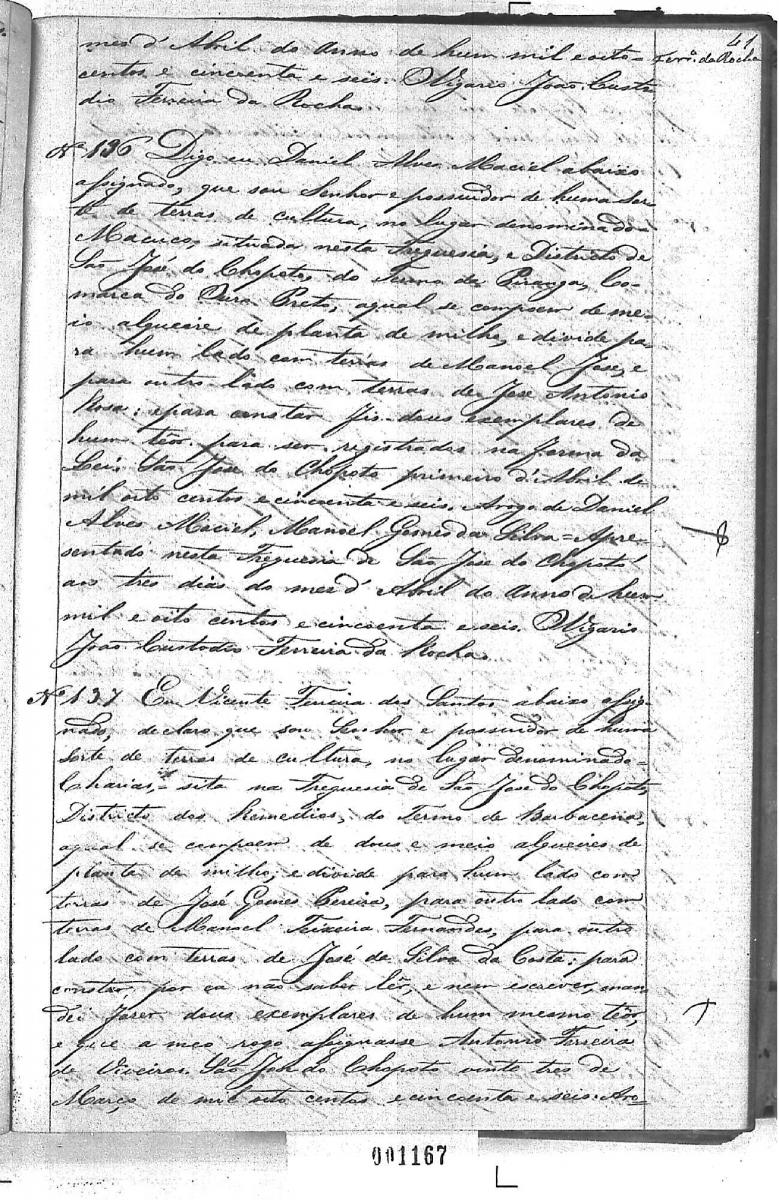 41
Ferrª. da Rocha
mes d'Abril do anno de hum mil e oito
centos e cincoenta e seis. O Vigario João Custo
dio Ferreira da Rocha.
Nº 136 Digo eu Daniel Alves Maciel abaixo
assignado, que sou Senhor e possuidor de huma sor
te de terras de cultura, no lugar denominado =
Macuco, situada nesta Freguesia, e Districto de
São José do Chopoto, do Termo da Piranga, Co-
marca do Ouro Preto, aqual se compoem de me-
io alqueire de planta de milho, e divide pa-
ra hum lado com terras de Manoel José, e
para outro lado com terras de José Antonio
Rosa; e para constar fis dous exemplares de
hum teôr para ser registrados na forma da
Lei. São José do Chopoto primeiro d'Abril de
mil oito centos e cincoenta e seis. Arogo de Daniel
Alves Maciel, Manoel Gomes da Silva = Apre-
sentado nesta Freguesia de São José do Chopotó
aos tres dias do mes d'Abril do anno de hum
mil e oito centos e cincoenta e seis. O Vigario
João Custodio Ferreira da Rocha.
Nº 137 Eu Vicente Ferreira dos Santos abaixo assig-
nado, declaro que sou Senhor e possuidor de huma
sorte de terras de cultura, no lugar denominado =
sita na Freguesia de São José do Chopoto,
Districto dos Remedios, do Termo de Barbacena,
aqual se compoem de dous e meio alqueires de
planta de milho; e divide para hum lado com
terras de José Gomes Pereira, para outro lado com
terras de Manoel Teixeira Fernandes, para outro
lado com terras de José da Silva da Costa; para
constar, por eu não saber lêr, e nem escrever, man
dei fazer dous exemplares de hum mesmo teôr,
e que a meo rogo assignasse Antonio Ferreira
de Viveiros. São José do Chopoto vinte tres de
Março de mil oito centos e cincoenta e seis. Aro=
001167